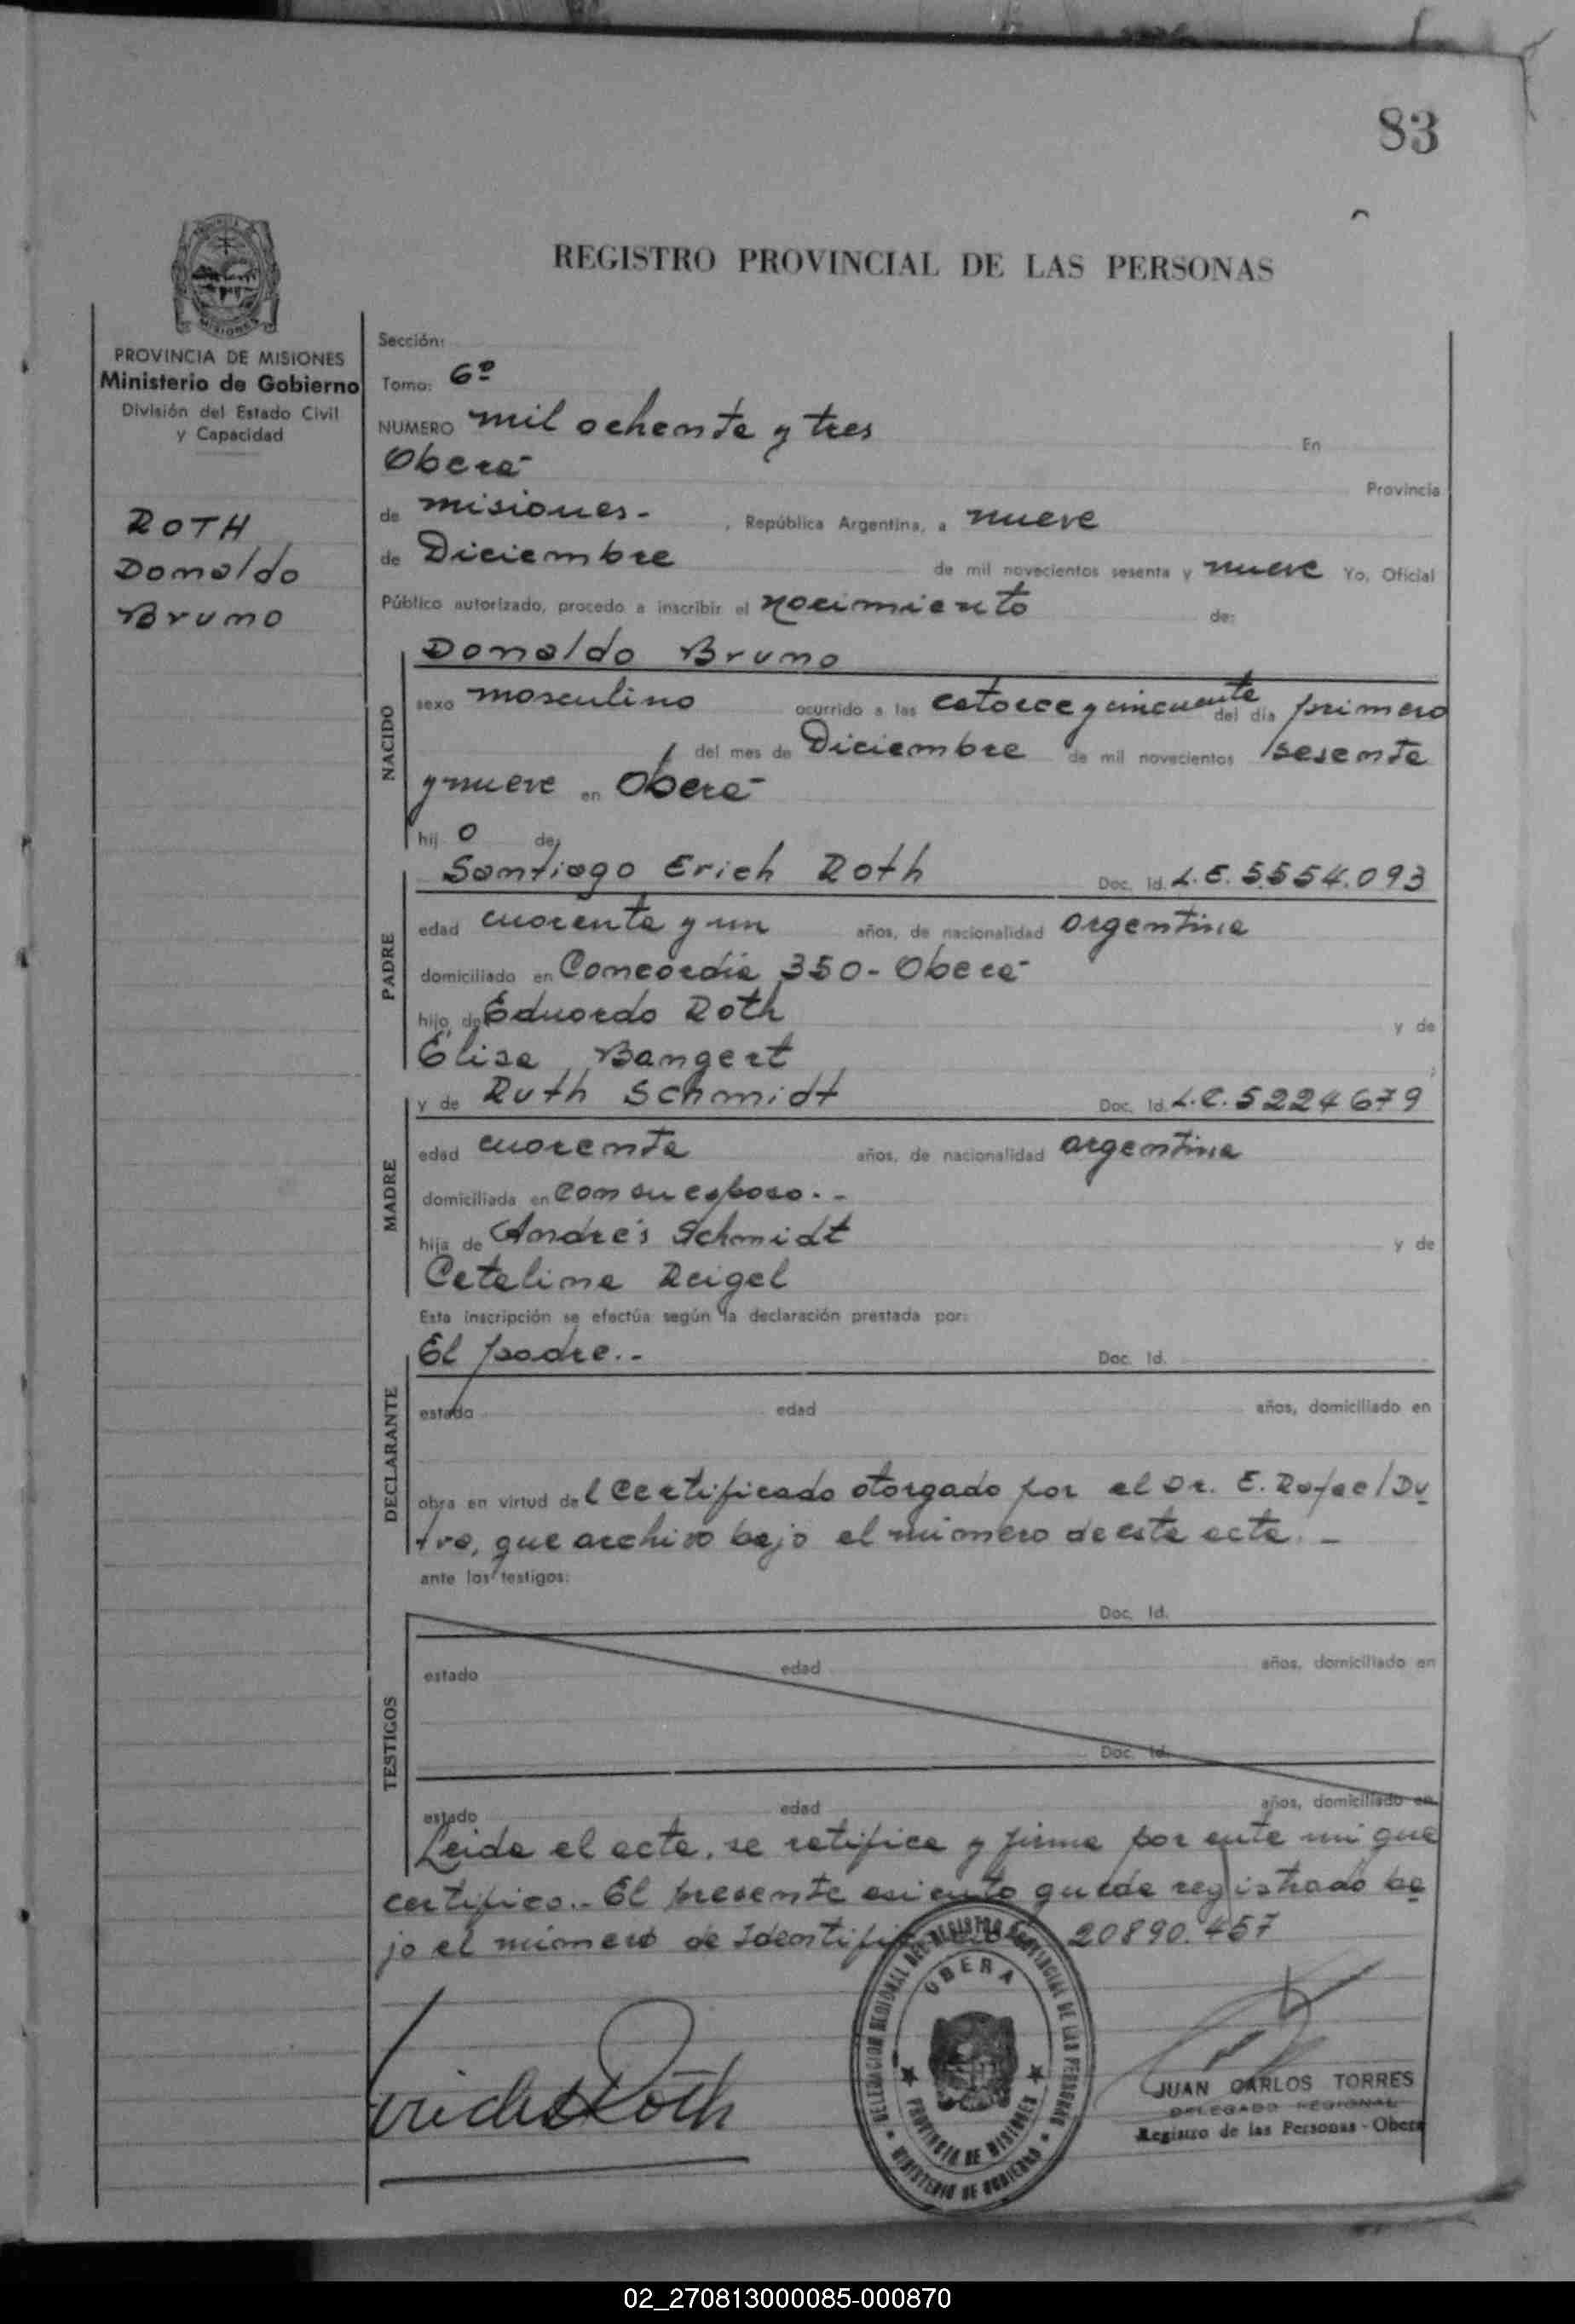 83
REGISTRO PROVINCIAL DE LAS PERSONAS
MISIONES
PROVINCIA DE MISIONES
Ministerio de Gobierno
División del Estado Civil
y Capacidad
ROTH
Donaldo
Bruno
Sección:
Tomo: 6º
NUMERO mil ochenta y tres En
Oberá Provincia
de misiones.- , República Argentina, a nueve
de Diciembre de mil novecientos sesenta y nueve Yo, Oficial
Público autorizado, procedo a inscribir el nacimiento de:
NACIDO
Donaldo Bruno
sexo masculino ocurrido a las catorce y cincuenta del día primero
del mes de Diciembre de mil novecientos sesenta
y nueve en Oberá
hij o de:
PADRE
Santiago Erich Roth Doc. Id. L.E. 5.554.093
edad cuarenta y un años, de nacionalidad argentina
domiciliado en Concordia 350 - Oberá
hijo de Eduardo Roth y de
Elisa Bangert
MADRE
y de Ruth Schmidt Doc. Id. L.C. 5224679
edad cuarenta años, de nacionalidad argentina
domiciliada en con su esposo.-
hija de Andrés Schmidt y de
Catalina Reigel
Esta inscripción se efectúa según la declaración prestada por:
DECLARANTE
El padre.- Doc. Id.
estado edad años, domiciliado en
obra en virtud del Certificado otorgado por el Dr. E. Rafael Du
tra, que archivo bajo el número de esta acta.-
ante los testigos:
TESTIGOS
Doc. Id.
estado edad años, domiciliado en
Doc. Id.
estado edad años, domiciliado en
Leida el acta, se ratifica y firma por ante mi que
certifico.- El presente asiento queda registrado ba
jo el número de Identificación 20890.457
Erich Roth
DELEGACION REGIONAL DEL REGISTRO PROVINCIAL DE LAS PERSONAS
OBERA
PROVINCIA DE MISIONES
MINISTERIO DE GOBIERNO
JUAN CARLOS TORRES
DELEGADO REGIONAL
Registro de las Personas - Oberá
02_270813000085-000870